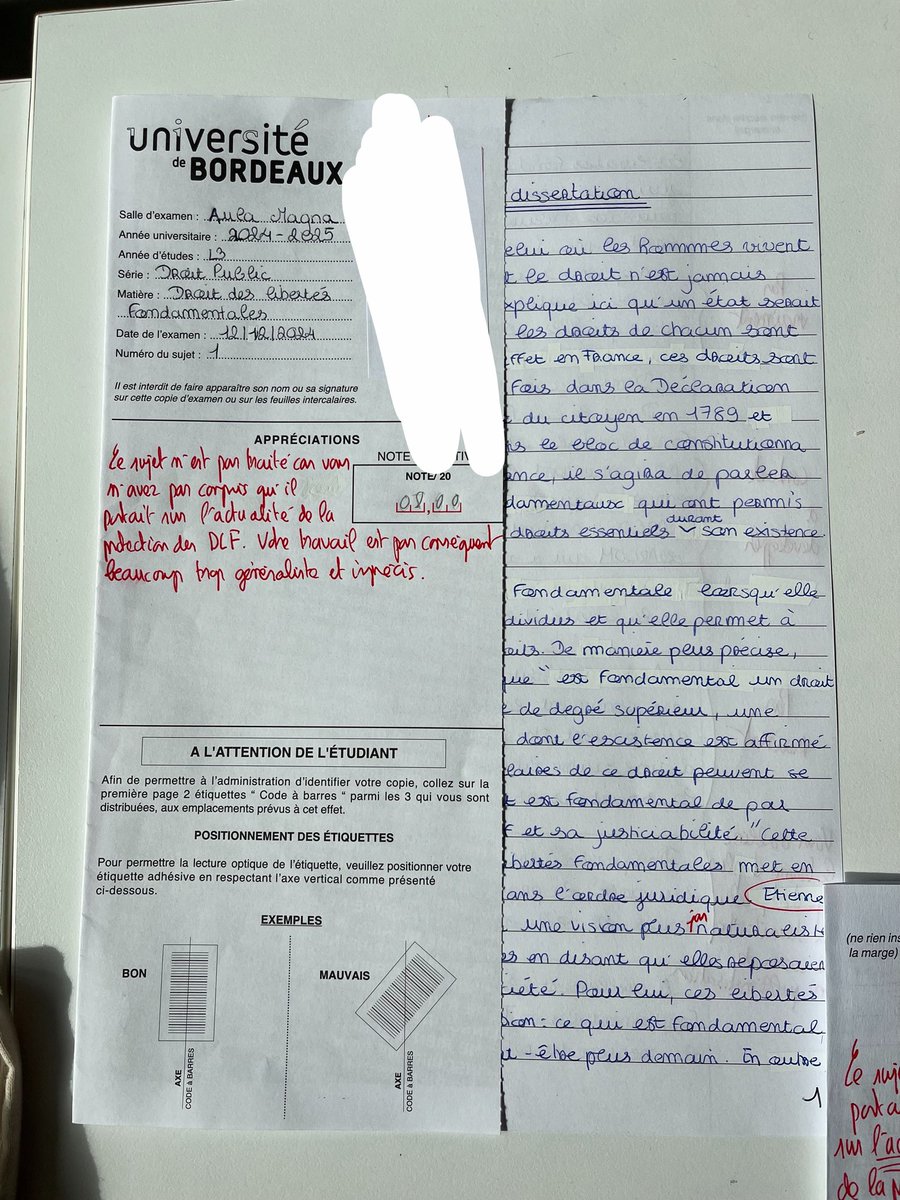 université
de BORDEAUX
Salle d'examen : Aula Magna
Année universitaire : 2024-2025
Année d'études : L3
Série : Droit Public
Matière : Droit des libertés
fondamentales
Date de l'examen : 12/12/2024
Numéro du sujet : 1
Il est interdit de faire apparaître son nom ou sa signature
sur cette copie d'examen ou sur les feuilles intercalaires.
APPRÉCIATIONS
NOTE
NOTE/ 20
08,00
Le sujet n'est pas traité car vous
n'avez pas compris qu'il
portait sur l'actualité de la
protection des DLF. Votre travail est par conséquent
beaucoup trop généraliste et imprécis.
A L'ATTENTION DE L'ÉTUDIANT
Afin de permettre à l'administration d'identifier votre copie, collez sur la
première page 2 étiquettes " Code à barres " parmi les 3 qui vous sont
distribuées, aux emplacements prévus à cet effet.
POSITIONNEMENT DES ÉTIQUETTES
Pour permettre la lecture optique de l'étiquette, veuillez positionner votre
étiquette adhésive en respectant l'axe vertical comme présenté
ci-dessous.
EXEMPLES
BON
MAUVAIS
AXE
CODE à BARRES
AXE
CODE à BARRES
dissertation
elui où les hommes vivent
le droit n'est jamais
xplique ici qu'un état serait
les droits de chacun sont
ffet en France, ces droits sont
fois dans la Déclaration
du citoyen en 1789 et
s le bloc de constitutionna
ance, il s'agira de parler
damentaux qui ont permis
durant
droits essentiels son existence
fondamentale lorsqu'elle
dividus et qu'elle permet à
oits. De manière plus précise,
que " est fondamental un droit
de degré supérieur, une
dont l'existence est affirmé
laires de ce droit peuvent se
t est fondamental de par
f et sa justiciabilité. "Cette
bertés fondamentales met en
ans l'ordre juridique. Etienne
une vision plus jus naturaliste
es en disant qu'elles reposaien
ciété. Pour lui, ces libertés
sion : ce qui est fondamental
u-être plus demain. En outre
1
(ne rien ins
la marge)
Le suje
porta
sur l'ac
de la